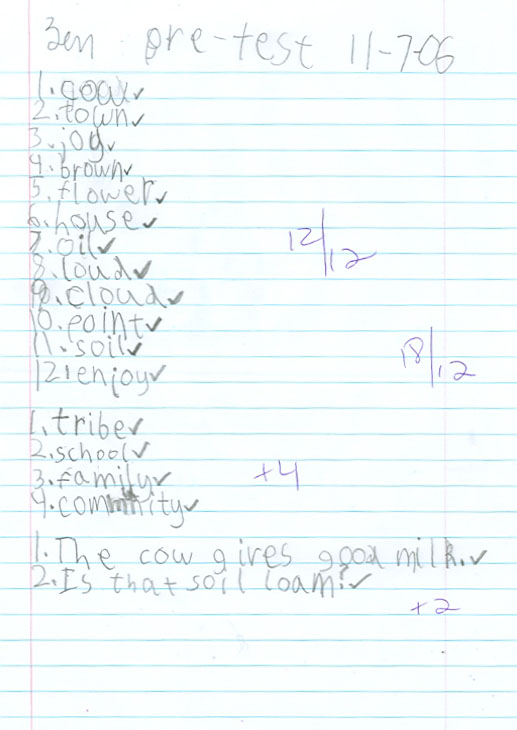 Ben pre-test 11-7-06
1. ✓
2. town✓
3. joy✓
4. brown✓
5. flower✓
6. house✓
7. oil✓
8. loud✓
9. cloud✓
10. point✓
11. soil✓
12. enjoy✓
12/12
18/12
1. tribe✓
2. school✓
3. family✓
4. community✓
+4
1. The cow gives good milk.✓
2. Is that soil loam?✓
+2